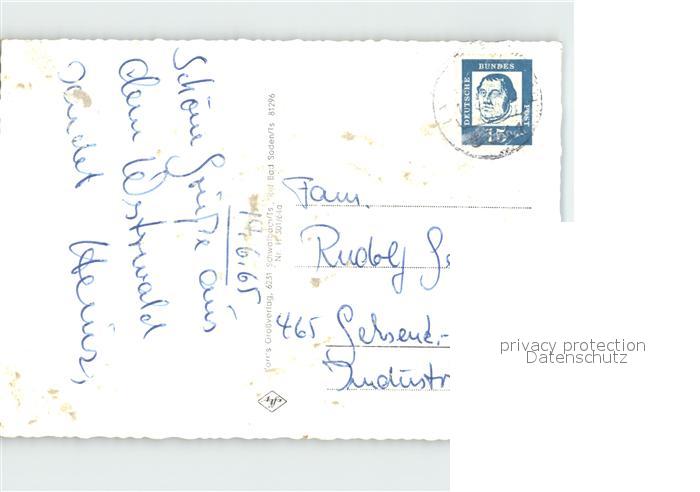 Schöne Grüße aus
dem Westerwald
sendet
Heinz.
14.6.65
Foris Großverlag, 6231 Schwalbach/Ts., Tel. Bad Soden/Ts 81296
Nr. H 501/64a
DEUTSCHE
BUNDES
POST
15
Fam.
Rudolf
465 Gelsenk.-
Industr
privacy protection
Datenschutz